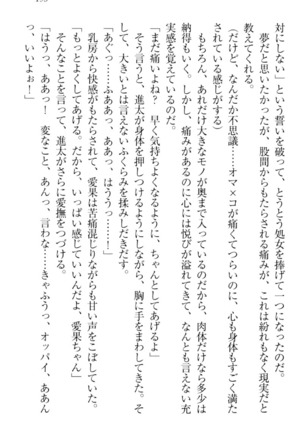 対にしない」という誓いを破って、とうとう処女を捧げて一つになった。
夢だと思いたかったが、股間からもたらされる痛みが、これは紛れもなく現実だと
教えてくれる。
(だけど、なんだか不思議……オマ×コが痛くてつらいのに、心も身体もすごく満た
されている感じがする)
もちろん、あれだけ大きなモノが奥まで入っているのだから、肉体だけなら多少は
納得もいく。しかし、痛みがあるのに心には悦びが溢れてきて、なんとも言えない充
実感を覚えているのだ。
「まだ痛いよね? 早く気持ちよくなるように、ちゃんとしてあげるよ」
そう言うと、進太が身体を押しつけるようにしながら、胸に手をまわしてきた。そ
して、大きいとは言えないふくらみを揉みしだきだす。
「あぐっ……ふああっ、ああっ、はううっ……!」
乳房から快感がもたらされて、愛果は苦痛混じりながらも甘い声をこぼしていた。
「もっとよくしてあげる。だから、いっぱい感じていいんだよ、愛果ちゃん」
そんなことを言って、進太がさらに愛撫をつづける。
「はうっ、ああっ! 変なこと、あんっ、言わな……きゃふうっ、オッパイ、ああん
っ、いいよぉ!」